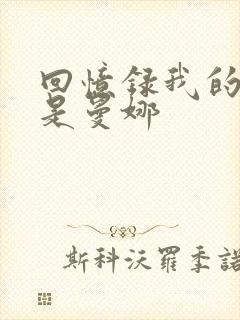 回憶錄我的
是曼娜
斯科沃羅季諾